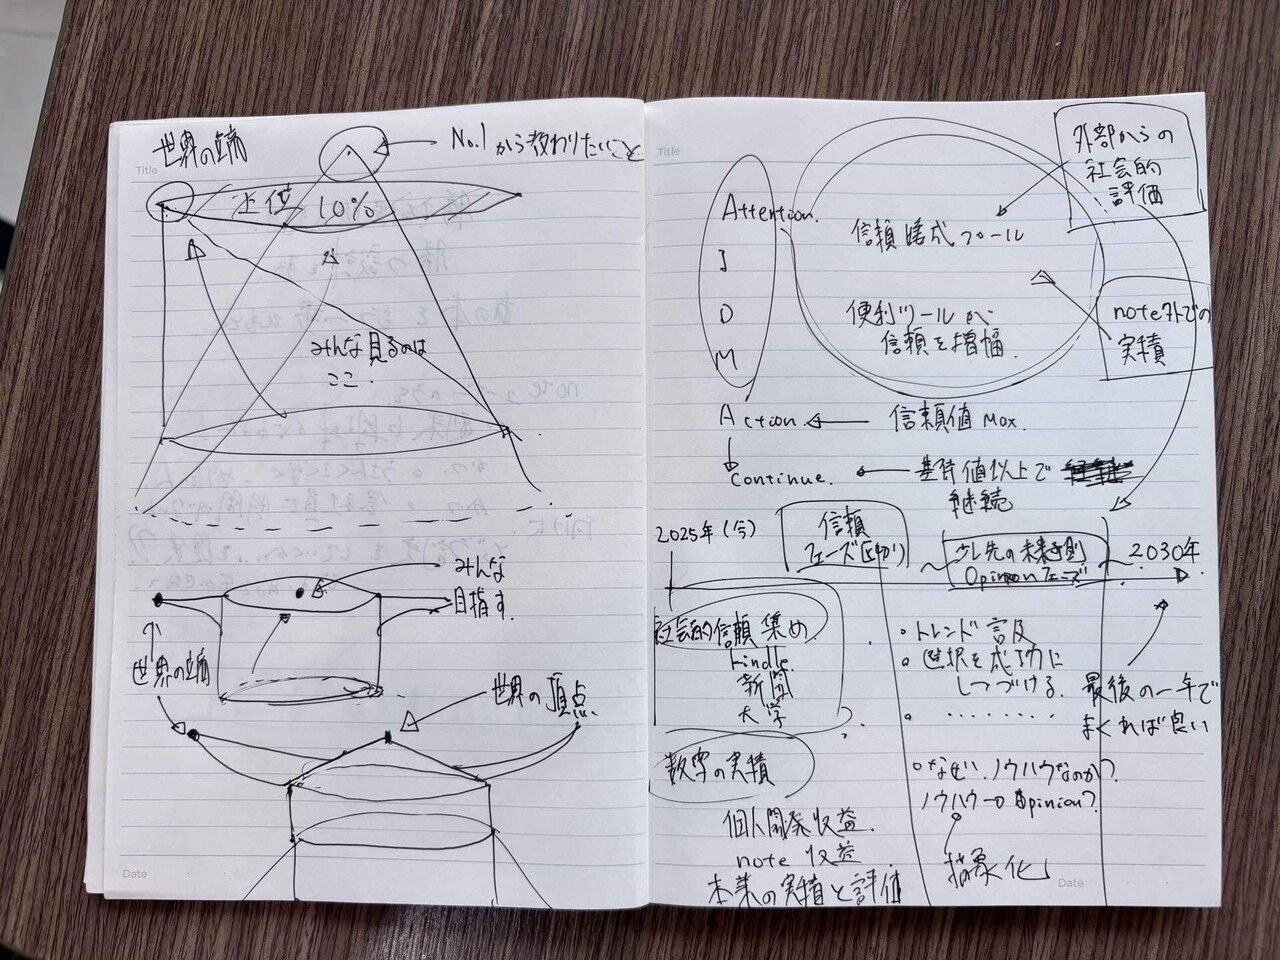 Title
世界の端
No.1 から教わりたいこと
上位 10%
みんな見るのは
ここ.
みんな
目指す.
世界の端
世界の頂点.
Date
Title
外部からの
社会的
評価
Attention.
I
D
M
信頼醸成プール
便利ツールが
信頼を増幅.
note外での
実績
Action.
信頼値 Max.
Continue.
基準値以上で
継続
2025年 (今)
信頼
フェーズ(区切り)
少し先の未来予測
Opinionフェーズ
~ 2030年
社会的信頼集め
kindle
新聞
大学
?
・トレンド言及
・選択を成功に
しつづける.
・ ・・・・・・・・
最後の一年で
まくれば良い
数字の実績
○なぜ、ノウハウなのか?
ノウハウ→Opinion?
個人開発収益.
note 収益
抽象化
本業の実績と評価
Date